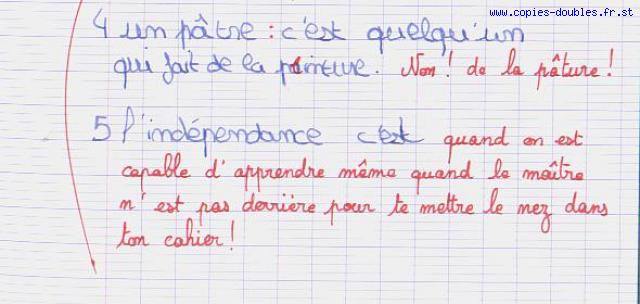 www.copies-doubles.fr.st
4 un pâtre : c'est quelqu'un
qui fait de la peinture. Non ! de la pâture !
5 l'indépendance c'est quand on est
capable d'apprendre même quand le maître
n'est pas derrière pour te mettre le nez dans
ton cahier !